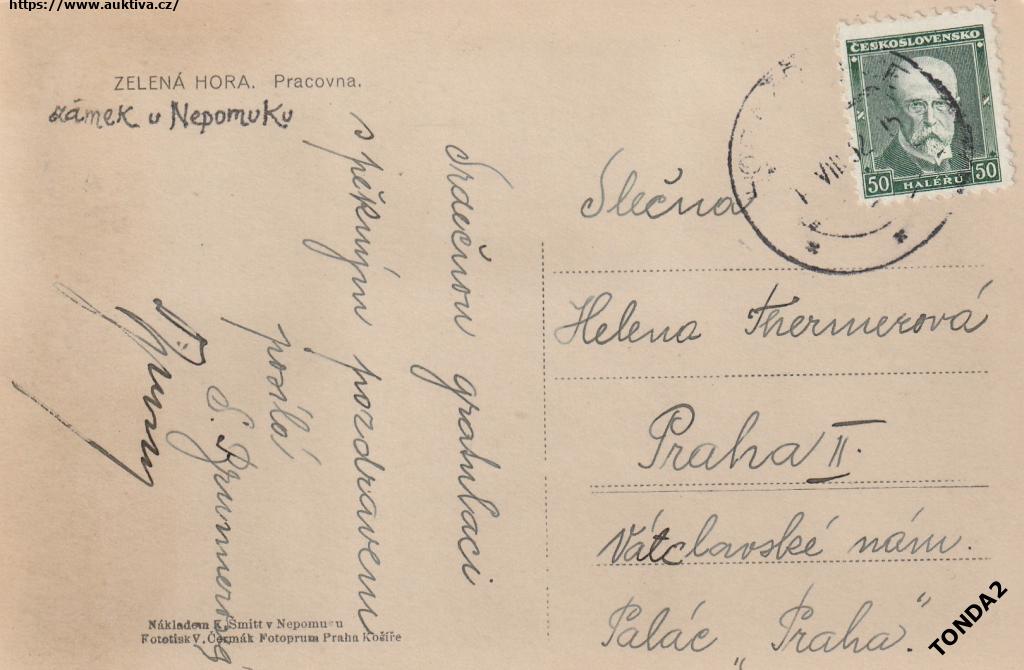 https://www.auktiva.cz/
ZELENÁ HORA. Pracovna.
zámek u Nepomuku
Srdečnou gratulaci
s pěkným pozdravem
posílá
S.
ČESKOSLOVENSKO
50 HALÉŘŮ 50
VIII
Slečna
Helena Thermerová
Praha II.
Vátclavské nám.
Palác „Praha".
Nákladem K. Šmitt v Nepomuku
Fototisk V. Čermák Fotoprum Praha Košíře
TONDA2